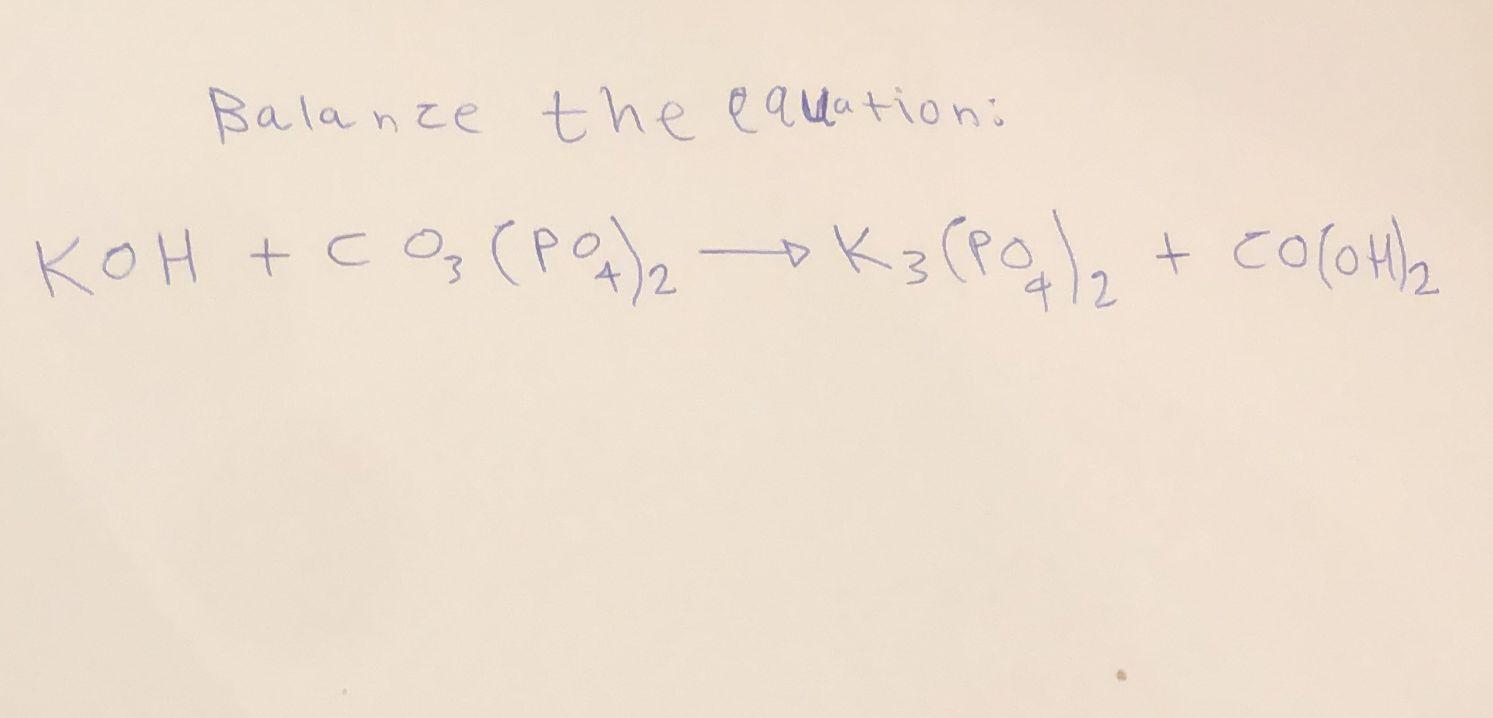 Balance the equation:
KOH + CO₃(PO₄)₂ → K₃(PO₄)₂ + CO(OH)₂